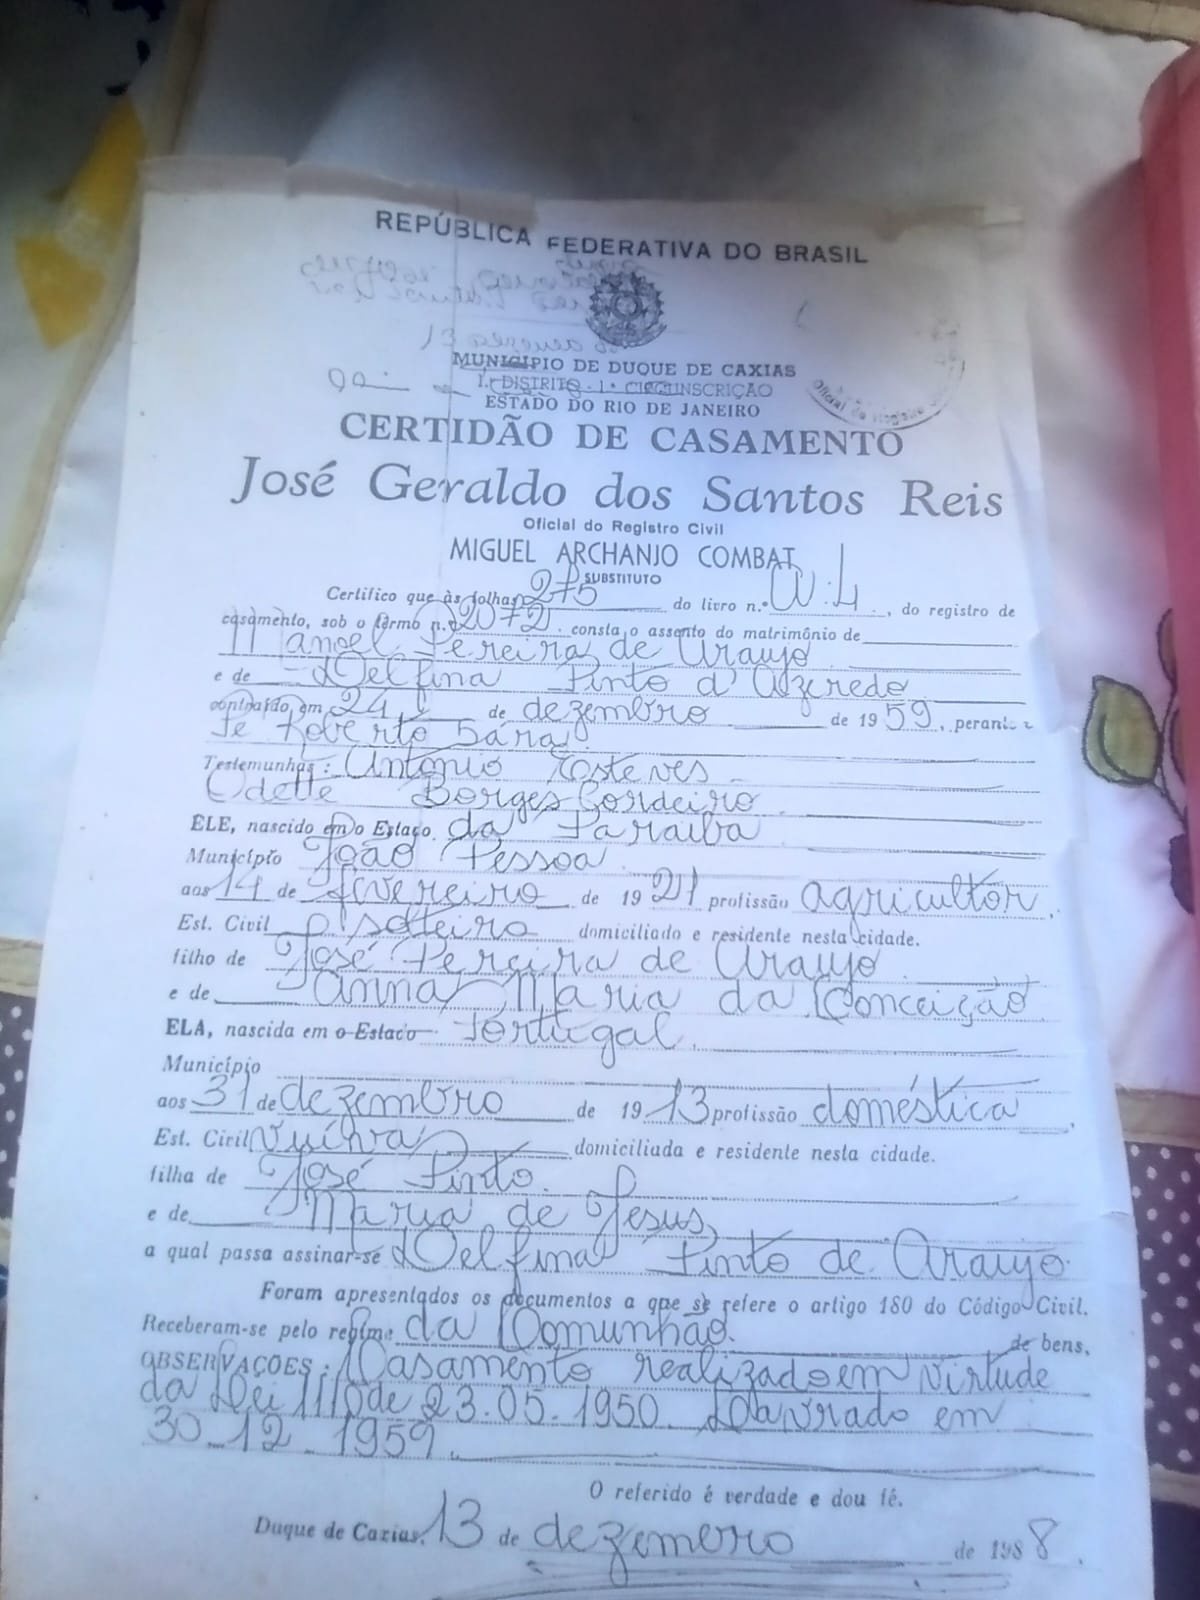 REPÚBLICA FEDERATIVA DO BRASIL
13
MUNICÍPIO DE DUQUE DE CAXIAS
1.º DISTRITO - 1ª CIRCUNSCRIÇÃO
ESTADO DO RIO DE JANEIRO
CERTIDÃO DE CASAMENTO
José Geraldo dos Santos Reis
Oficial do Registro Civil
MIGUEL ARCHANJO COMBAT
SUBSTITUTO
Certifico que às folhas 275 do livro n.º , do registro de
casamento, sob o termo n.º 2072 consta o assento do matrimônio de
Manoel Pereira de Araujo
e de Delfina Pinto d'Azeredo
contraído em 24 de dezembro de 1959, perante
Pe Roberto Sara
Testemunhas: Antonio Esteves
Odette Borges Cordeiro
ELE, nascido em o Estado da Paraiba
Município João Pessoa
aos 14 de fevereiro de 1921 profissão agricultor.
Est. Civil solteiro domiciliado e residente nesta cidade.
filho de José Pereira de Araujo
e de Anna Maria da Conceição
ELA, nascida em o Estado Portugal
Município
aos 31 de dezembro de 1913 profissão doméstica
Est. Civil Viúva domiciliada e residente nesta cidade.
filha de José Pinto
e de Maria de Jesus
a qual passa assinar-se Delfina Pinto de Araujo
Foram apresentados os documentos a que se refere o artigo 180 do Código Civil.
Receberam-se pelo regime da Comunhão de bens.
OBSERVAÇÕES: Casamento realizado em virtude
da Lei 1110 de 23.05.1950. Lavrado em
30-12-1959.
O referido é verdade e dou fé.
Duque de Caxias, 13 de dezembro de 1988.